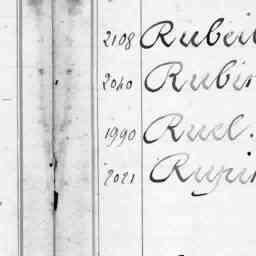 2108 Rubei
2040 Rubin
1990 Ruel.
2021